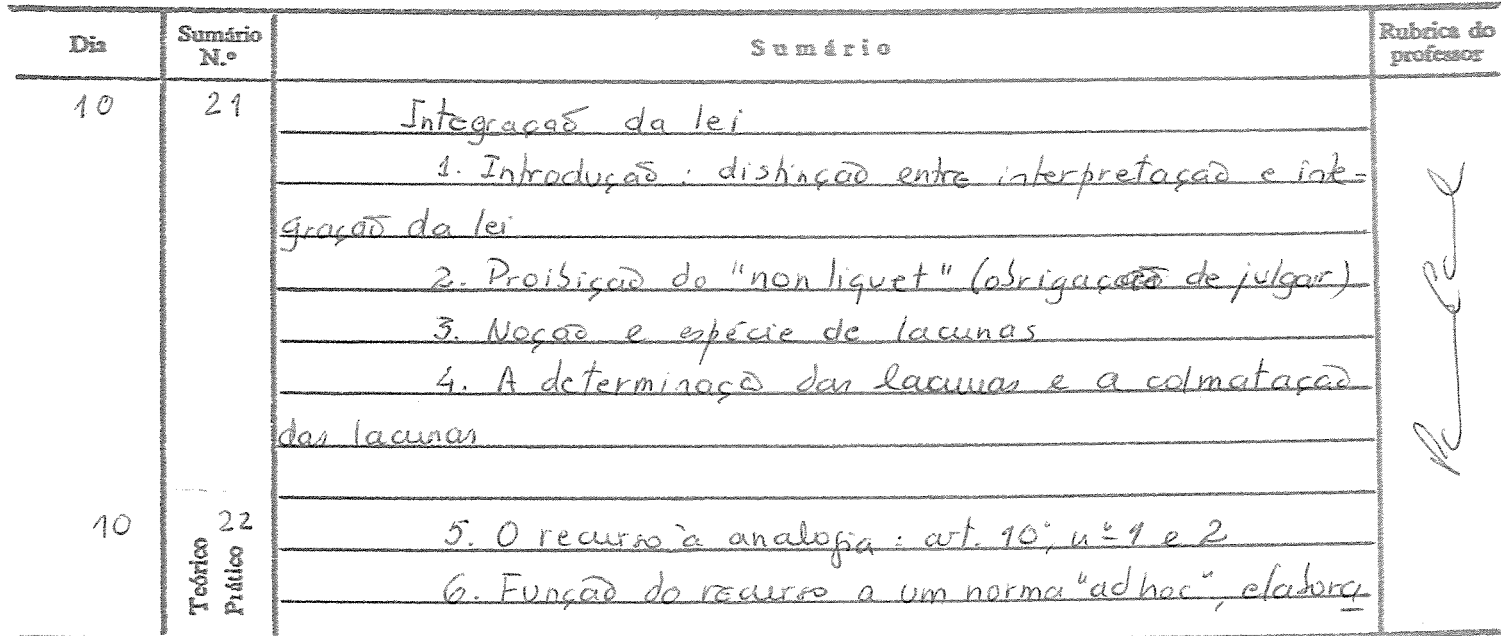 Dia Sumário N.º Sumário Rubrica do professor
10 21 Integração da lei
1. Introdução: distinção entre interpretação e inte-
gração da lei
2. Proibição do "non liquet" (obrigação de julgar)
3. Noção e espécie de lacunas
4. A determinaçã das lacunas e a colmatação
das lacunas
10 22 Teórico Prático 5. O recurso à analogia: art. 10º, nº 1 e 2
6. Função do recurso a um norma "ad hoc", elabora